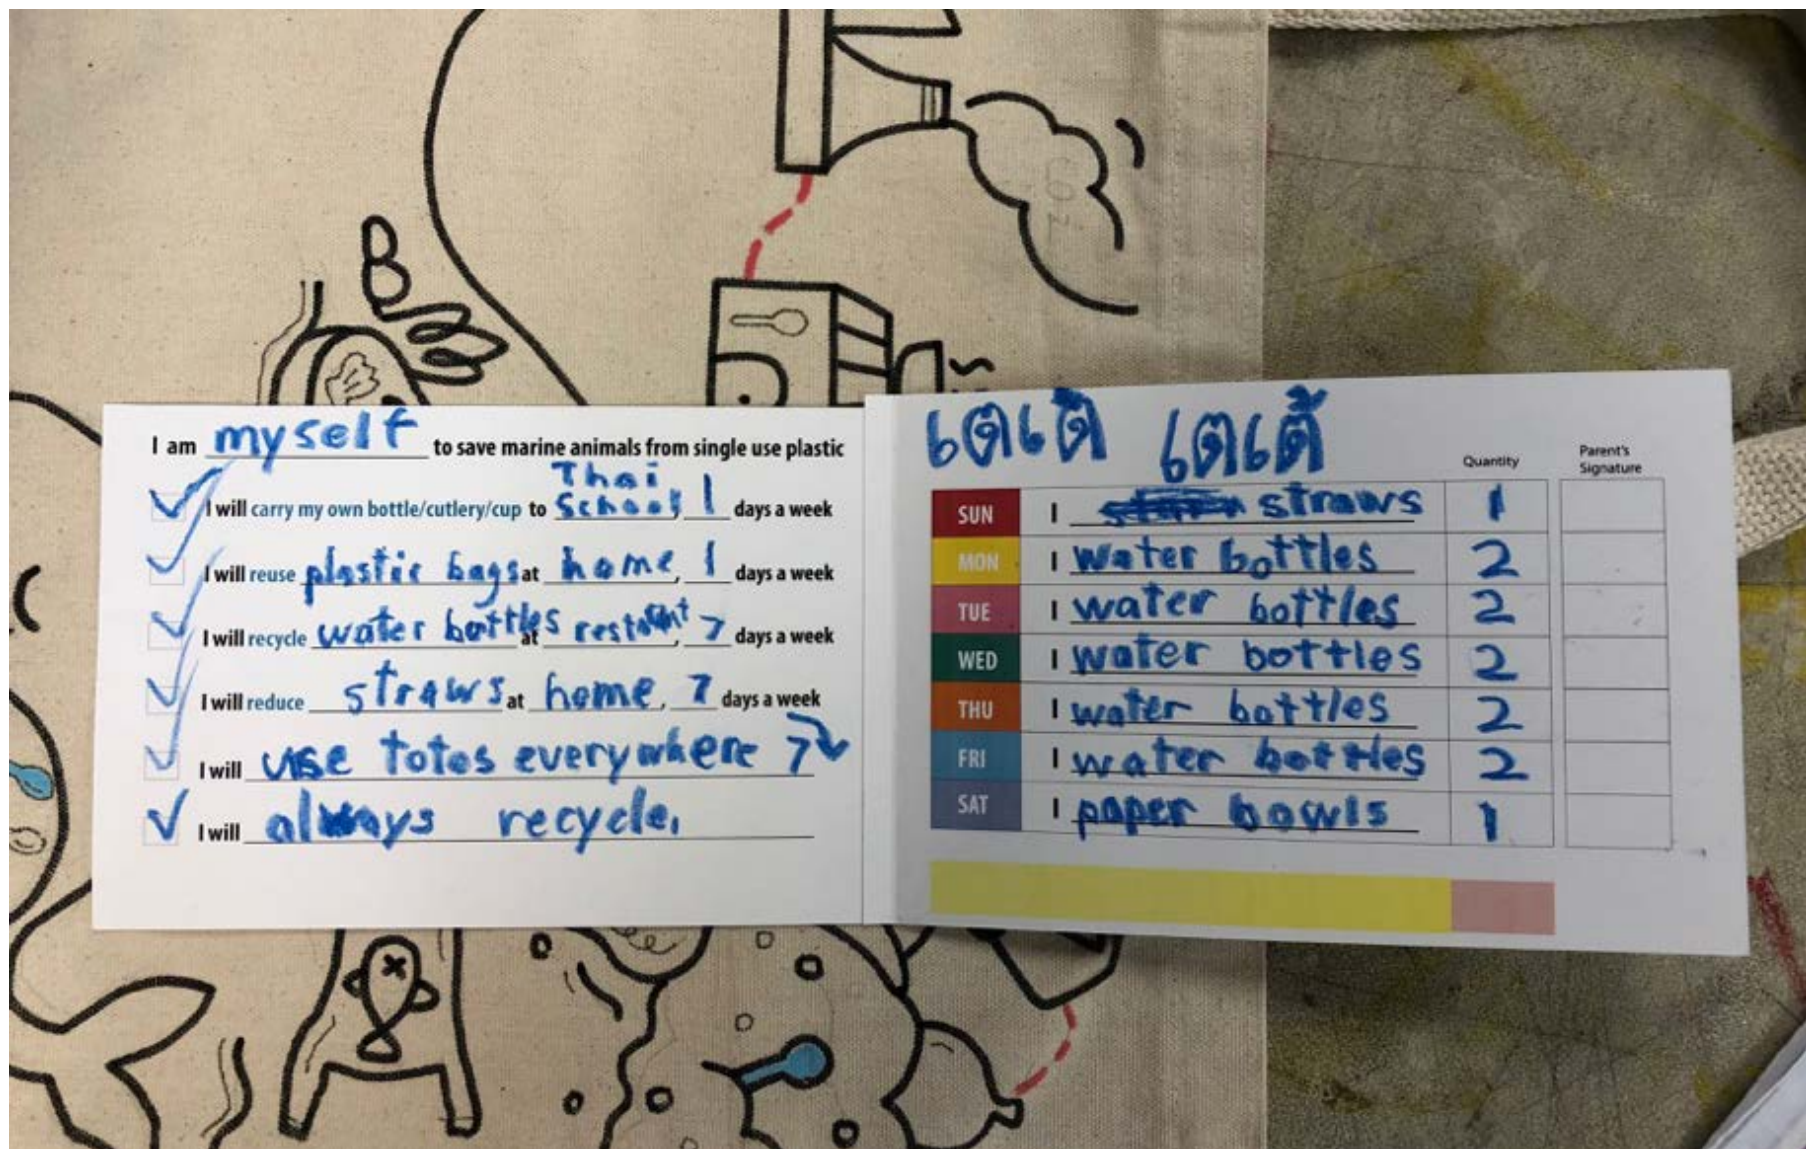 I am myself to save marine animals from single use plastic
Thai
I will carry my own bottle/cutlery/cup to School, 1 days a week
I will reuse plastic bags at home, 1 days a week
I will recycle water bottles at 7 days a week
I will reduce straws at home, 7 days a week
I will use totes everywhere 7
I will always recycle.
Quantity
Parent's
Signature
SUN I straws 1
MON I water bottles 2
TUE I water bottles 2
WED I water bottles 2
THU I water bottles 2
FRI I water bottles 2
SAT I paper bowls 1